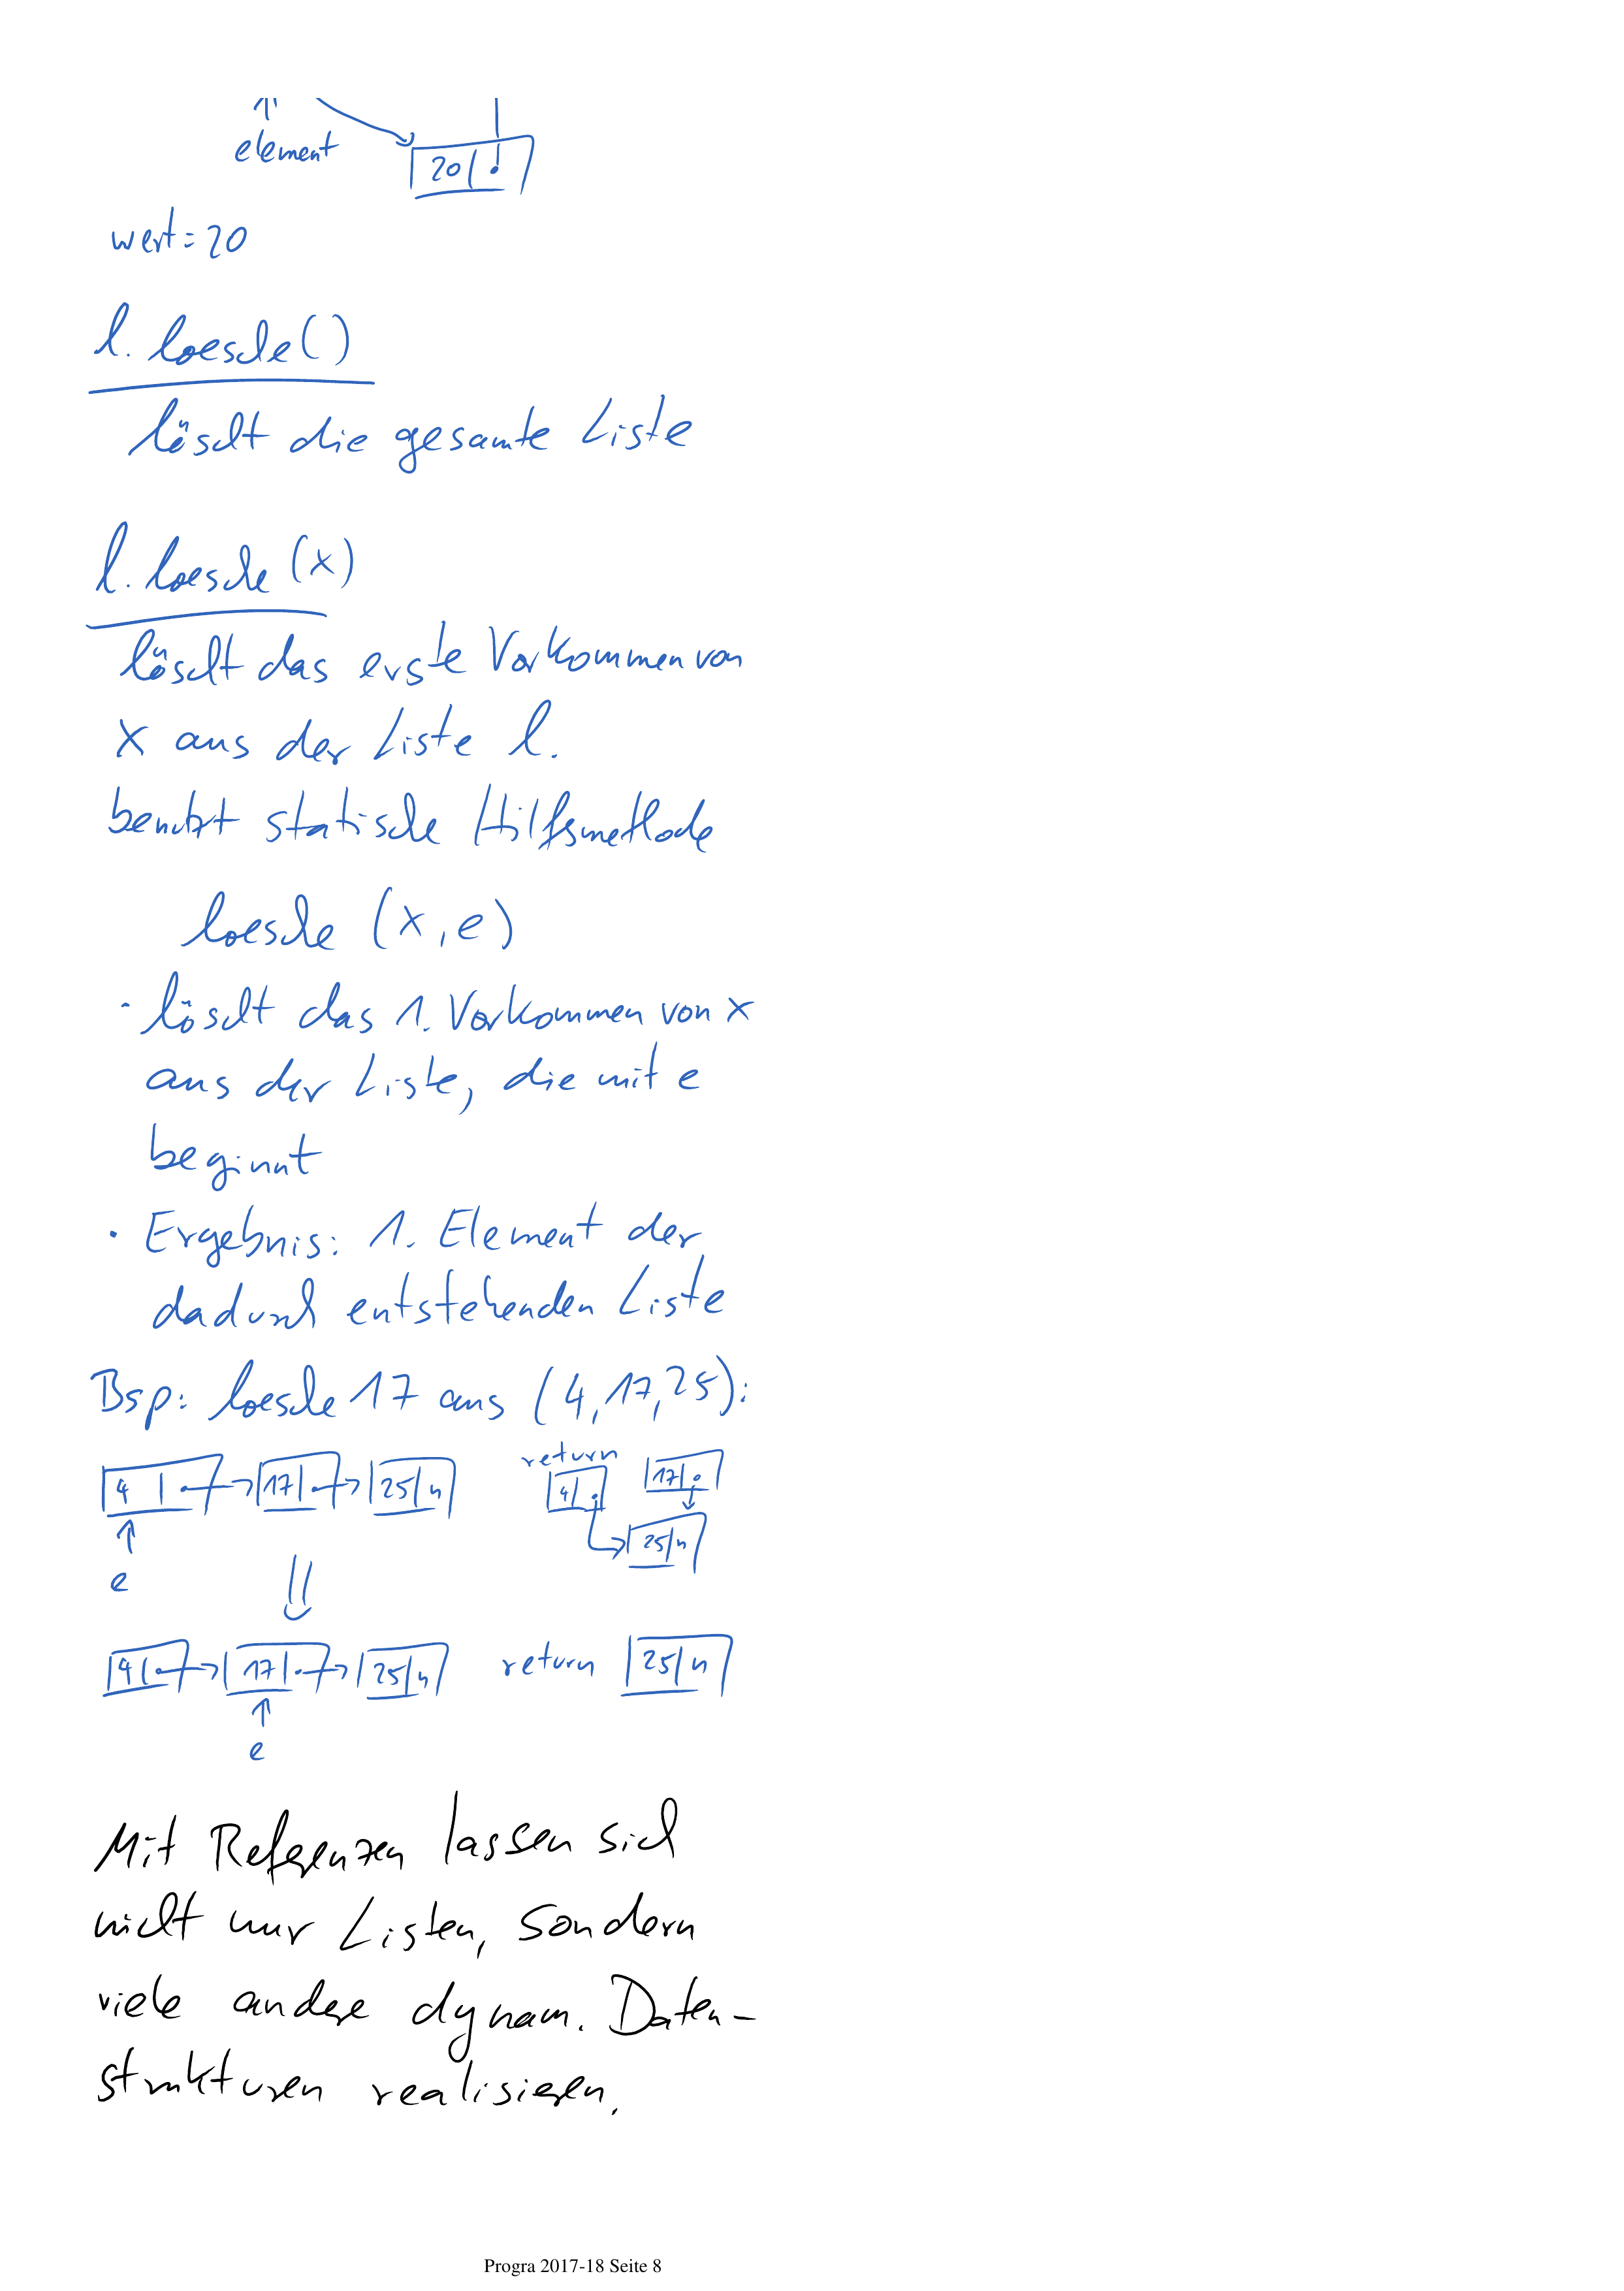 element
20 .
wert = 20
l. loesche()
löscht die gesamte Liste
l. loesche (x)
löscht das erste Vorkommen von
x aus der Liste l.
benutzt statische Hilfsmethode
loesche (x, e)
· löscht das 1. Vorkommen von x
aus der Liste, die mit e
beginnt
· Ergebnis: 1. Element der
dadurch entstehenden Liste
Bsp: loesche 17 aus (4, 17, 25):
return
4 → 17 → 25 n 4 17
25 n
e
⇓
4 → 17 → 25 n return 25 n
e
Mit Referenzen lassen sich
nicht nur Listen, sondern
viele andere dynam. Daten-
strukturen realisieren.
Progra 2017-18 Seite 8